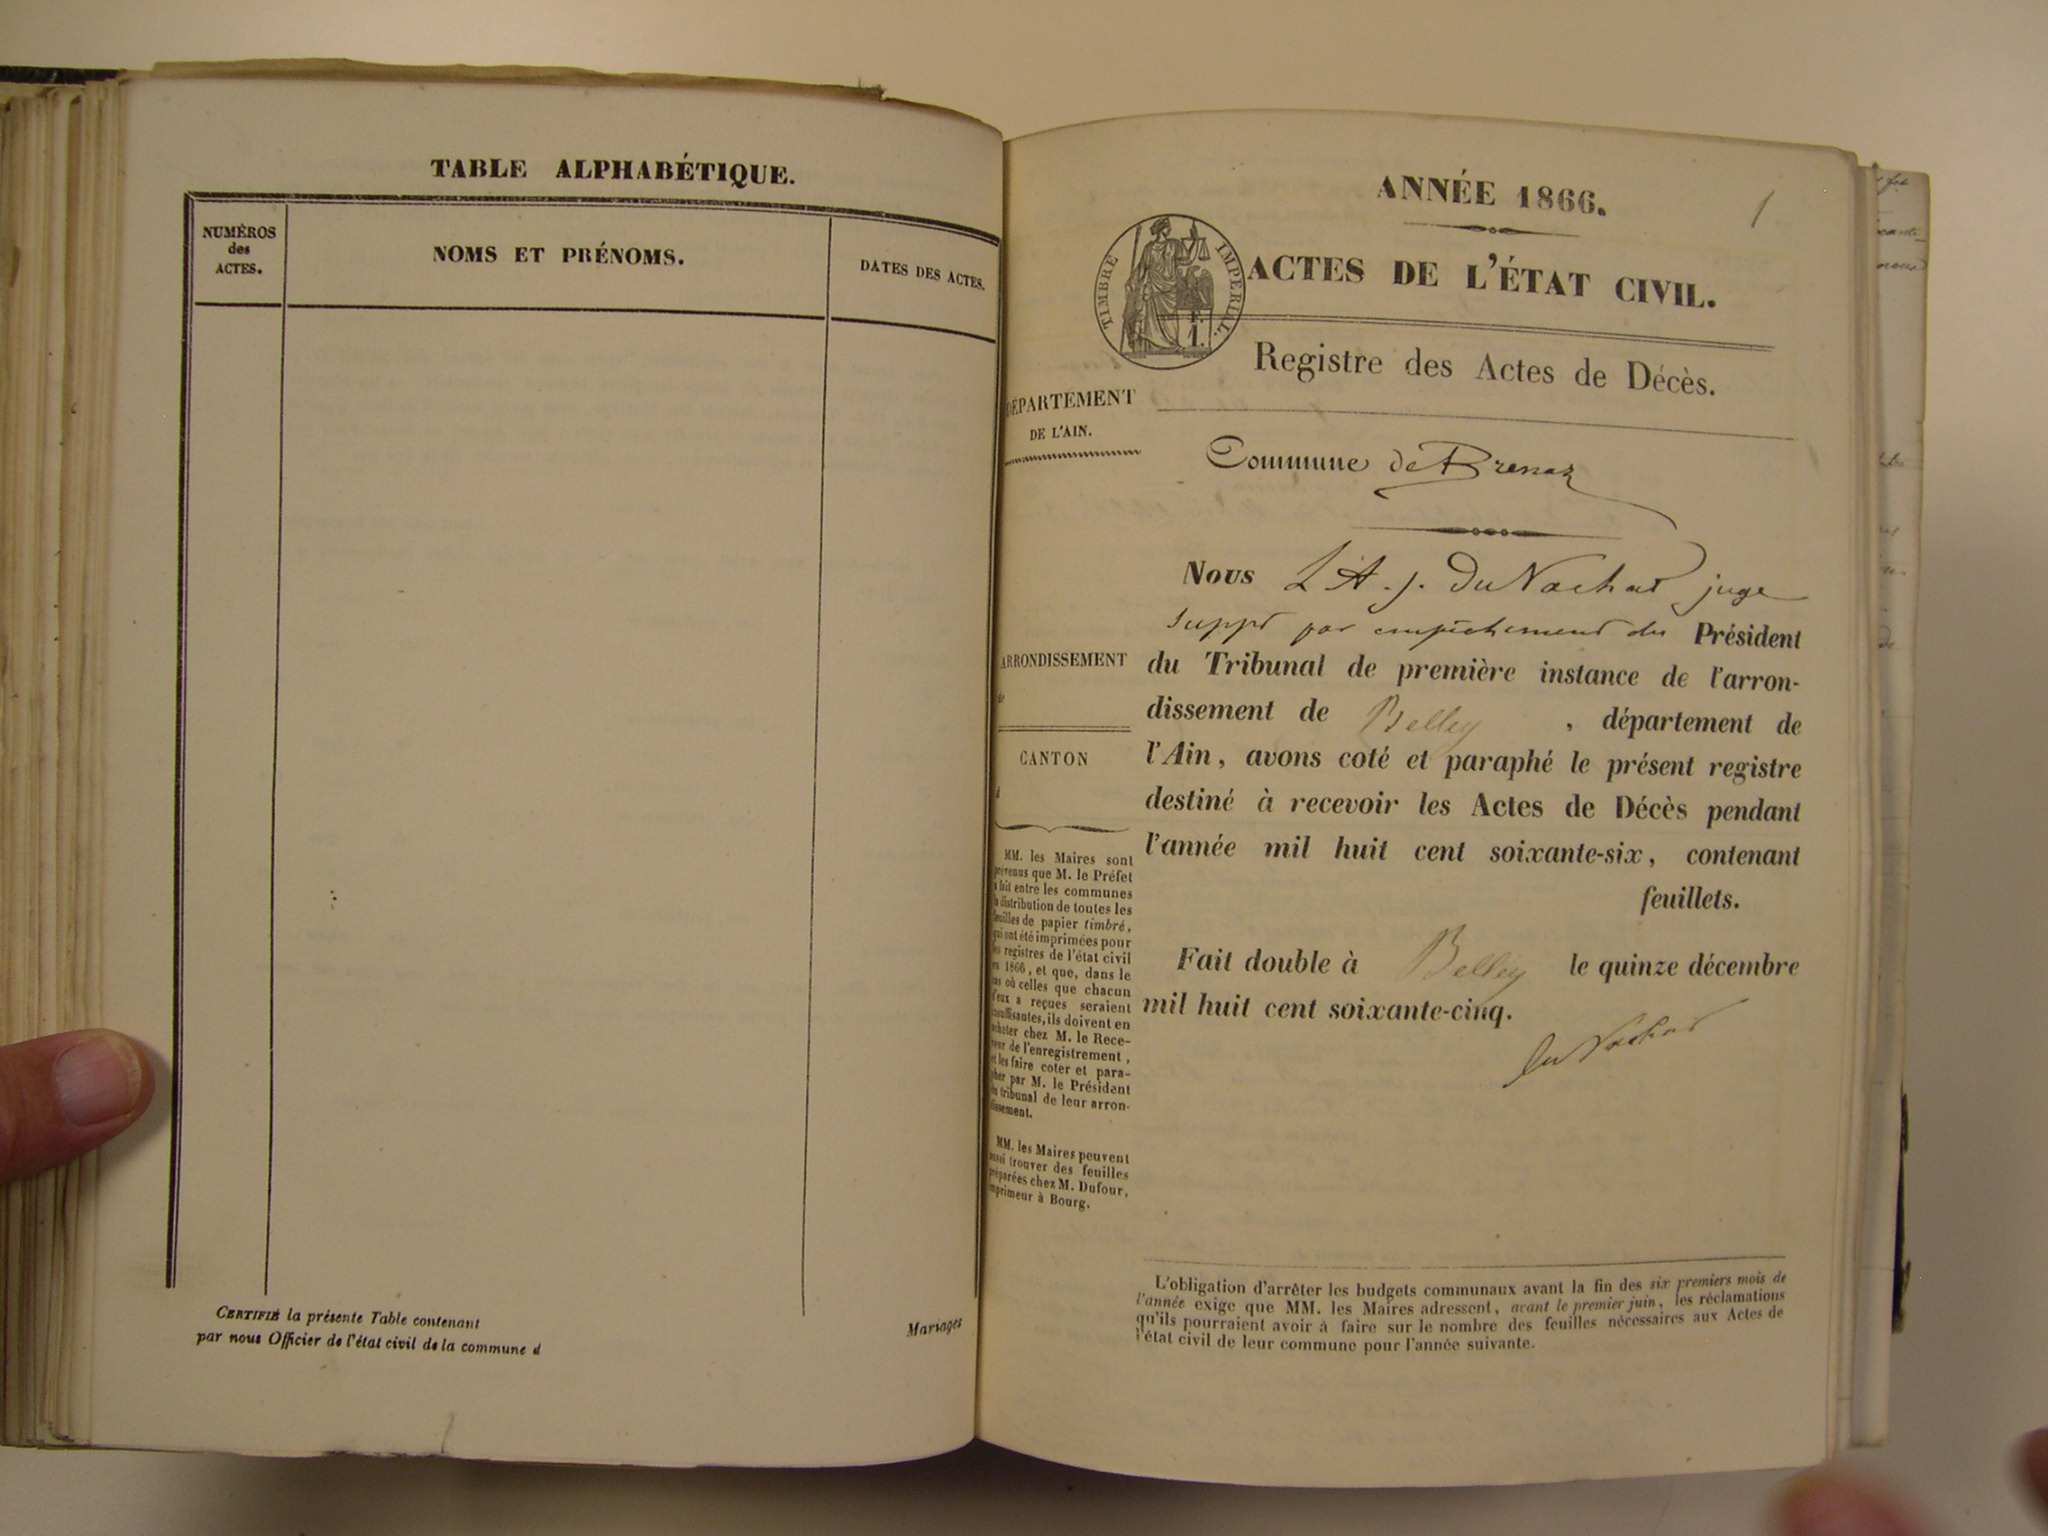 TABLE ALPHABÉTIQUE.
NUMÉROS
des
ACTES.
NOMS ET PRÉNOMS.
DATES DES ACTES.
CERTIFIÉ la présente Table contenant
par nous Officier de l'état civil de la commune d
Mariages
1
ANNÉE 1866.
TIMBRE IMPÉRIAL.
1.
ACTES DE L'ÉTAT CIVIL.
Registre des Actes de Décès.
DÉPARTEMENT
DE L'AIN.
Commune de Brenaz
ARRONDISSEMENT
de
CANTON
d
MM. les Maires sont
prévenus que M. le Préfet
a fait entre les communes
la distribution de toutes les
feuilles de papier timbré,
qui ont été imprimées pour
les registres de l'état civil
en 1866, et que, dans le
cas où celles que chacun
d'eux a reçues seraient
insuffisantes, ils doivent en
acheter chez M. le Rece-
veur de l'enregistrement,
et les faire coter et para-
pher par M. le Président
du tribunal de leur arron-
dissement.
MM. les Maires peuvent
aussi trouver des feuilles
préparées chez M. Dufour,
imprimeur à Bourg.
Nous L A. J. Du Nachat juge
suppt par empêchement du Président
du Tribunal de première instance de l'arron-
dissement de Belley, département de
l'Ain, avons coté et paraphé le présent registre
destiné à recevoir les Actes de Décès pendant
l'année mil huit cent soixante-six, contenant
feuillets.
Fait double à Belley le quinze décembre
mil huit cent soixante-cinq.
Du Nachat
L'obligation d'arrêter les budgets communaux avant la fin des six premiers mois de
l'année exige que MM. les Maires adressent, avant le premier juin, les réclamations
qu'ils pourraient avoir à faire sur le nombre des feuilles nécessaires aux Actes de
l'état civil de leur commune pour l'année suivante.